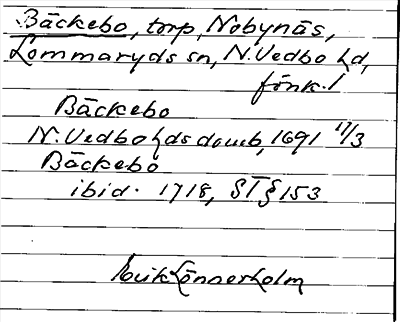 Bäckebo, torp, Nobynäs,
Lommaryds sn, N. Vedbo hd,
Jönk. l
Bäckebo
N. Vedbo hds domb, 1691 17/3
Bäckebo
ibid. 1718, ST § 153
Erik Lönnerholm